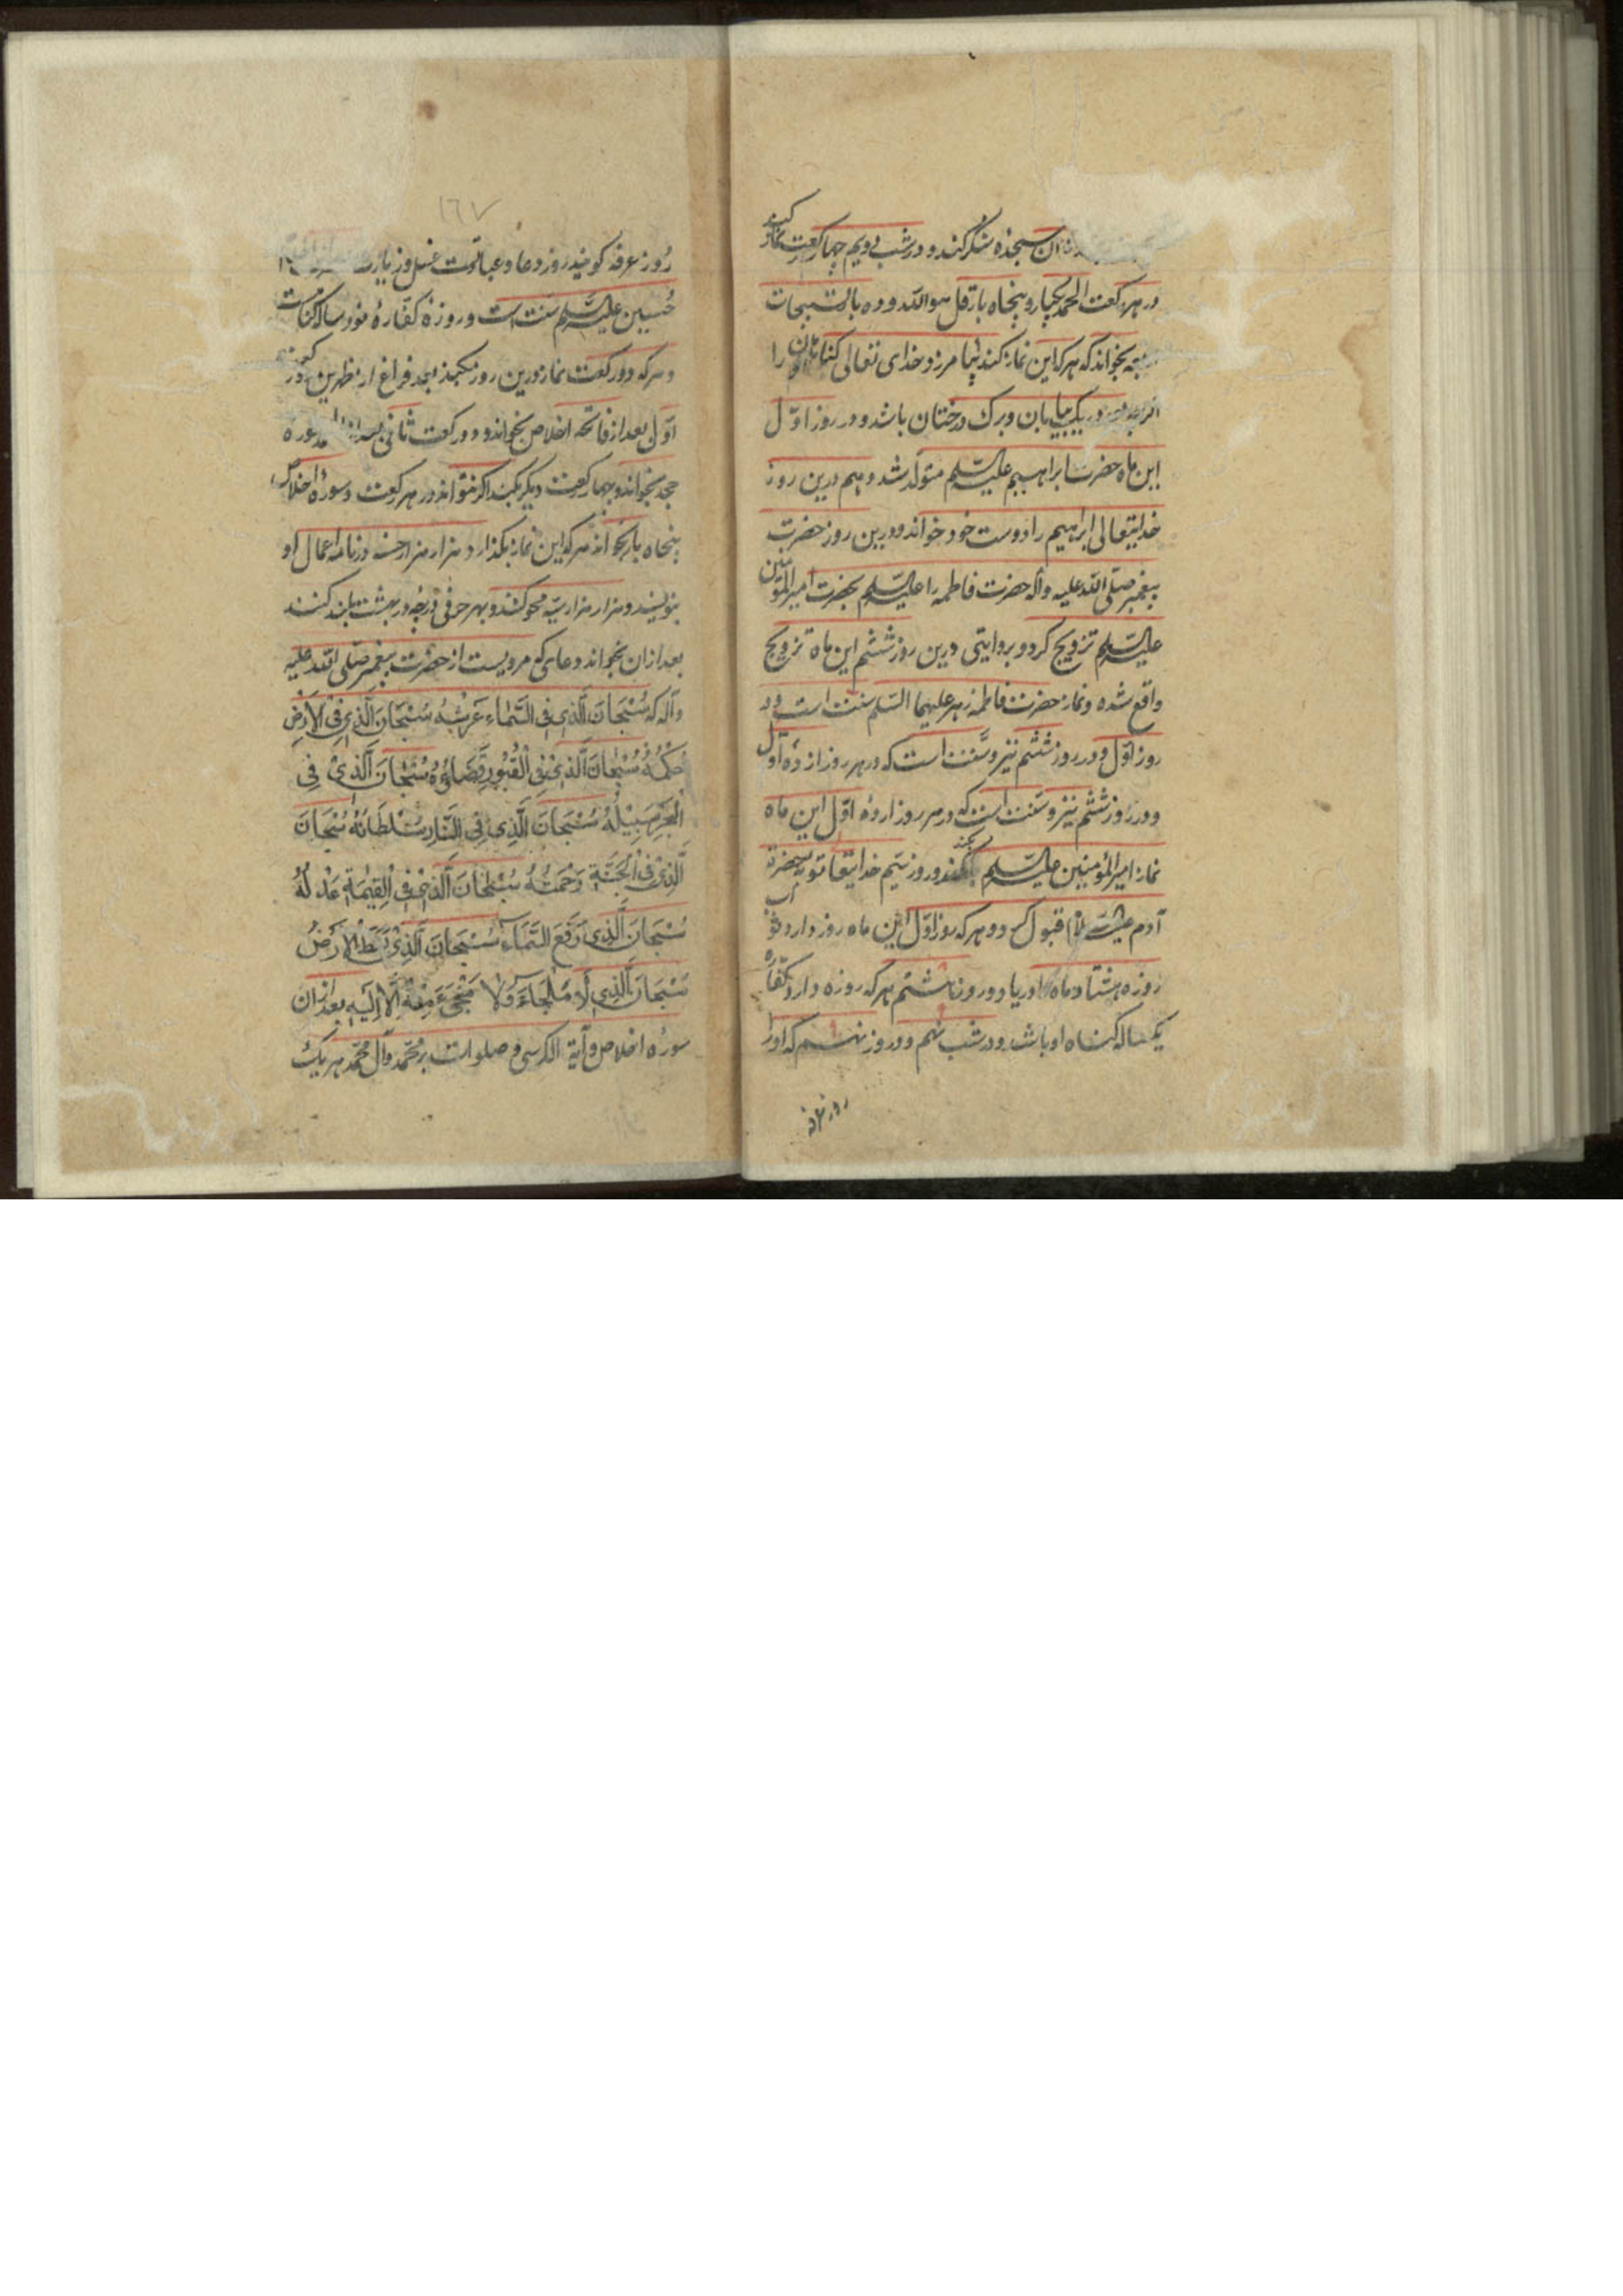 ان سجده شکر کند و در شب دویم چهار رکعت نماز کند
در هر رکعت الحمد یکبار و پنجاه بار قل هو الله و ده بار تسبیحات
بخواند که هر که این نماز کند بیامرزد خدای تعالی کناهان او را
اگر بعدد ریک بیابان و برک درختان باشد و در روز اوّل
این ماه حضرت ابراهیم علیه السّلم متولّد شد و هم درین روز
خدایتعالی ابراهیم را دوست خود خواند و درین روز حضرت
پیغمبر صلّی الله علیه واله حضرت فاطمه را علیه السّلم بحضرت امیر المؤمنین
علیه السّلم تزویج کرد و بروایتی درین روز ششم این ماه تزویج
واقع شده و نماز حضرت فاطمه زهرا علیهما السّلم سنّت است در
روز اوّل و در روز ششم نیز و سنّت است که در هر روز از ده اوّل
و در روز ششم نیز و سنّت است که در هر روز از ده اوّل این ماه
نماز امیر المؤمنین علیه السّلم بکند و روز نهم خدایتعا توبه حضرة
آدم علیه السّلام قبول کرد و هر که روز اوّل این ماه روزه دارد ثواب
روزه هشتاد ماه اوریا و در روز ششم هر که روزه دارد کفّاره
یکساله کناه او باشد و در شب نهم و در روز نهم که او را
روز عرفه
١٦٧
روز عرفه کویند روز دعا و عبادتست غسل و زیارت
حسین علیه السّلم سنّت است و روزه کفّارهٔ نود ساله کناهست
و هر که دو رکعت نماز درین روز بکند بعد فراغ از ظهرین در رکعت
اوّلی بعد از فاتحه اخلاص بخواند و در رکعت ثانی بعد از سوره
جحد بخواند و چهار رکعت دیکر بکند اکر بتواند در هر رکعت و سورهٔ اخلاص
پنجاه بار بخواند هر که این نماز بکذارد هزار هزار حسنه در نامه اعمال او
بنویسند و هزار هزار سیّئه محو کنند و بهر حرفی درجه در بهشت بلند کنند
بعد از ان بخواند دعای که مرویست از حضرت پیغمبر صلّی الله علیه
وآله که سُبْحَانَ الَّذِي فِي السَّمَاءِ عَرْشُهُ سُبْحَانَ الَّذِي فِي الْاَرْضِ
حُكْمُهُ سُبْحَانَ الَّذِي فِي الْقُبُورِ قَضَاؤُهُ سُبْحَانَ الَّذِي فِي
الْبَحْرِ سَبِيْلُهُ سُبْحَانَ الَّذِي فِي النَّارِ سُلْطَانُهُ سُبْحَانَ
الَّذِي فِي الْجَنَّةِ رَحْمَتُهُ سُبْحَانَ الَّذِي فِي الْقِيٰمَةِ عَدْلُهُ
سُبْحَانَ الَّذِي رَفَعَ السَّمَاءَ سُبْحَانَ الَّذِي بَسَطَ الْاَرْضَ
سُبْحَانَ الَّذِي لَا مَلْجَاءَ وَلَا مَنْجَى مِنْهُ اِلَّا اِلَيْهِ بعد از ان
سوره اخلاص و آیة الکرسی و صلوات بر محمّد و آل محمّد هر یک